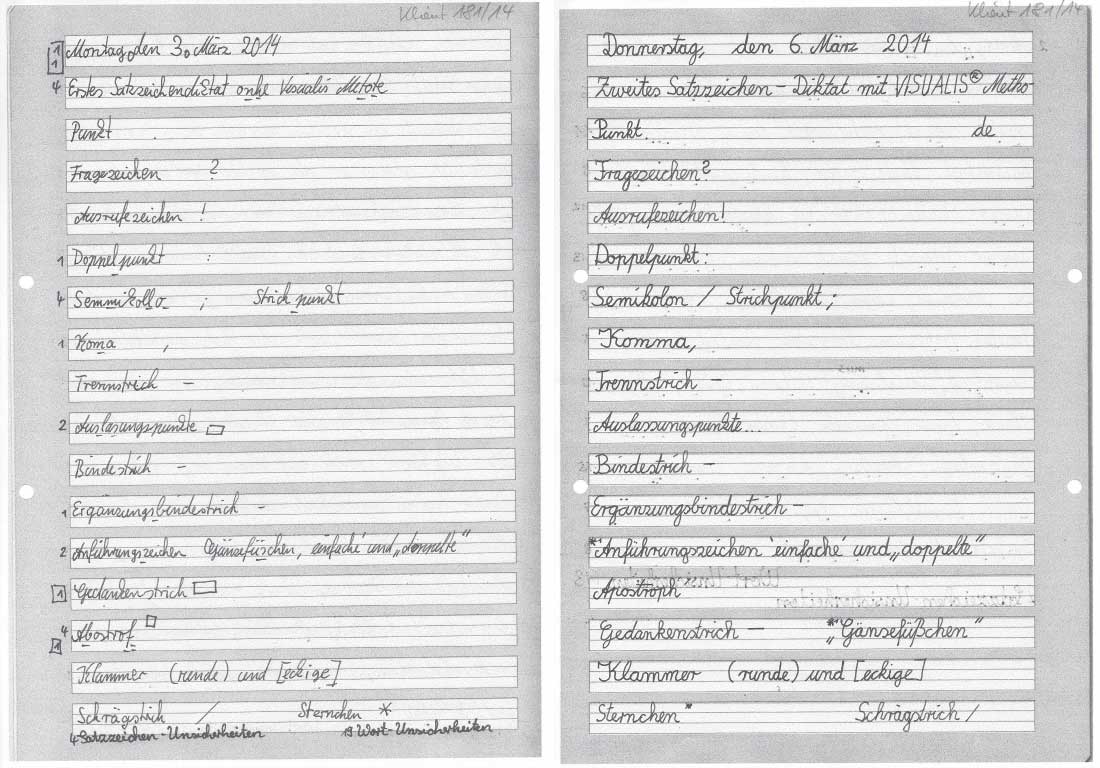 Klient 181/14
1 Montag, den 3. März 2014
1
4 Erstes Satzzeichendicktat onhe Visualis Metote
Punkt .
Fragezeichen ?
Ausrufezeichen !
1 Doppelpunkt :
4 Semmikollo ; Strichpunkt
1 Koma ,
Trennstrich –
2 Auslasungspunkte
Bindestrich –
1 Ergänzungsbindestrich –
2 Anführungszeichen Gänsefüschen, einfache und „doppelte“
1 Gedankenstrich
4 Abostrof
1
Klammer (runde) und [eckige]
Schrägstich / Sternchen *
4 Satzzeichen-Unsicherheiten 19 Wort-Unsicherheiten
Klient 181/14
Donnerstag, den 6. März 2014
Zweites Satzzeichen – Diktat mit VISUALIS® Metho-
Punkt. de
Fragezeichen?
Ausrufezeichen!
Doppelpunkt:
Semikolon / Strichpunkt;
Komma,
Trennstrich –
Auslassungspunkte...
Bindestrich –
Ergänzungsbindestrich –
*Anführungszeichen 'einfache' und „doppelte“
Apostroph'
Gedankenstrich — *„Gänsefüßchen“
Klammer (runde) und [eckige]
Sternchen* Schrägstrich /